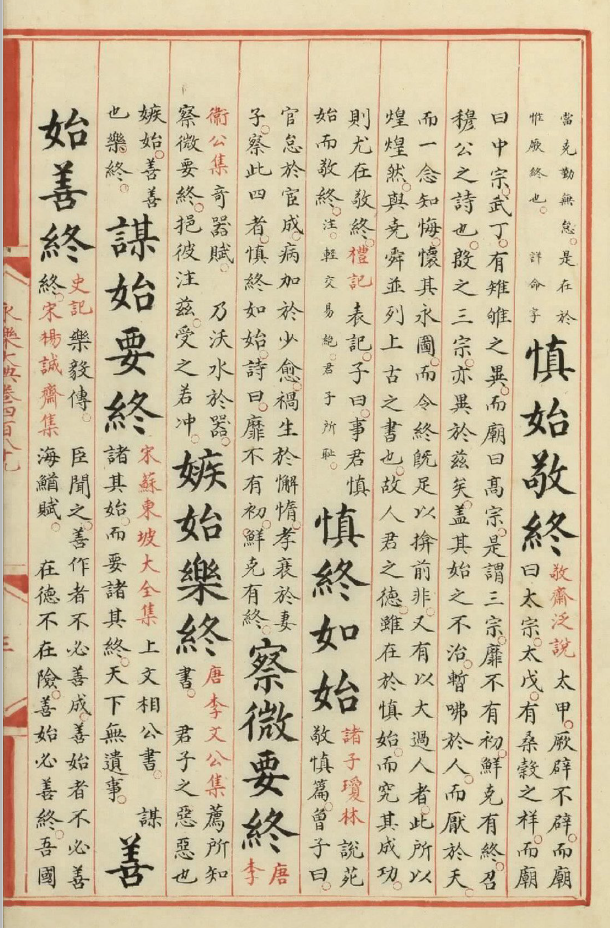 當克勤無怠。是在於
惟厥終也。 詳命字
慎始敬終
敬齋泛說 太甲。厥辟不辟。而廟
曰太宗。太戊。有桑榖之祥。而廟
曰中宗。武丁。有雉雊之異。而廟曰高宗。是謂三宗。靡不有初。鮮克有終。召
穆公之詩也。殷之三宗。亦異於茲矣。蓋其始之不治。暫咈於人。而厭於天。
而一念知悔。懷其永圖。而令終旣足以揜前非。又有以大過人者。此所以
煌煌然。與堯舜並列上古之書也。故人君之德。雖在於慎始。而究其成功。
則尤在敬終。禮記 表記。子曰。事君慎
始而敬終。注。輕交易絶。君子所恥。
慎終如始
諸子瓊林 說苑
敬慎篇。曾子曰。
官怠於宦成。病加於少愈。禍生於懈惰。孝衰於妻
子。察此四者。慎終如始。詩曰。靡不有初。鮮克有終。
察微要終
唐
李
衛公集 奇器賦。 乃沃水於器。
察微要終。挹彼注茲。受之若冲。
嫉始樂終
唐李文公集 薦所知
書。 君子之惡惡也
嫉始。善善
也樂終。
謀始要終
宋蘇東坡大全集 上文相公書。 謀
諸其始。而要諸其終。天下無遺事。
善
始善終
史記 樂毅傳。 臣聞之。善作者不必善成。善始者不必善
終。宋楊誠齋集 海鰌賦。 在德不在險。善始必善終。吾國
永樂大典卷四百八十九
三